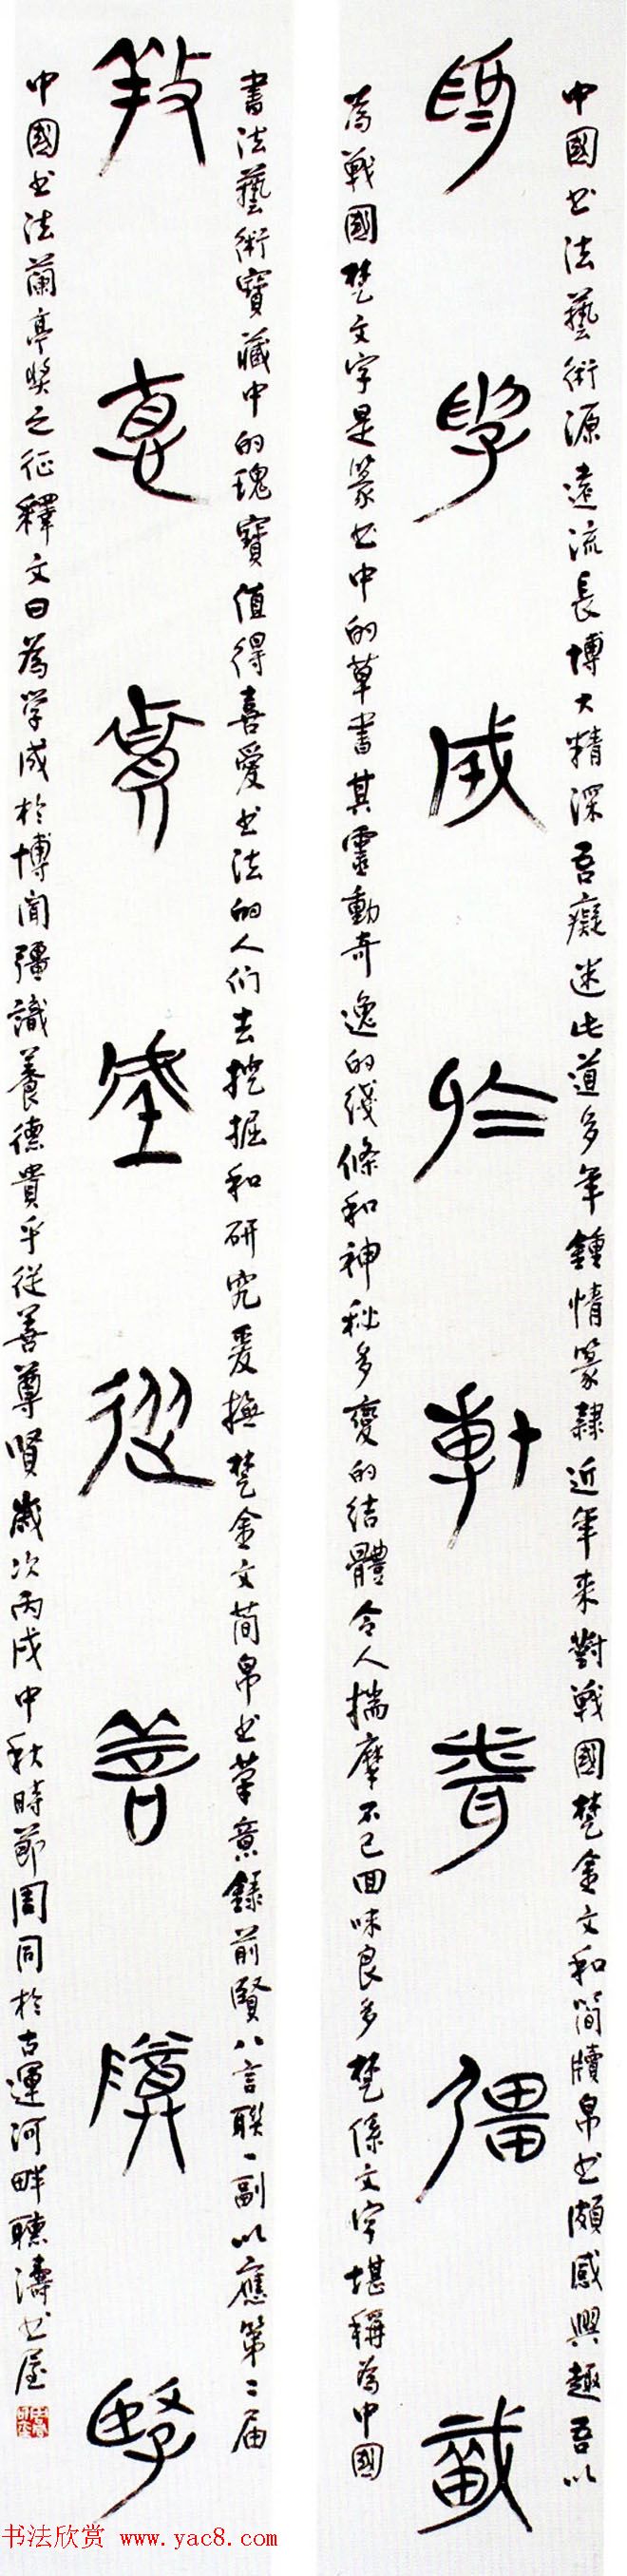 中國书法藝術源遠流長博大精深吾癡迷此道多年鍾情篆隸近年来對戰國楚金文和简牘帛书頗感興趣吾以
為學成於博聞彊識
為戰國楚文字是篆书中的草書其靈動奇逸的线條和神秘多變的结體令人揣摩不已回味良多楚係文字堪稱為中國
書法藝術寶藏中的瑰寶值得喜愛书法的人们去挖掘和研究爰撫楚金文简帛书筆意録前賢八言聯一副以應第二届
養德貴乎從善尊賢
中國书法蘭亭奬之征釋文曰為学成於博闻彊識養德貴乎從善尊賢歲次丙戌中秋時節周同於古運河畔聽濤书屋
书法欣赏 www.yac8.com